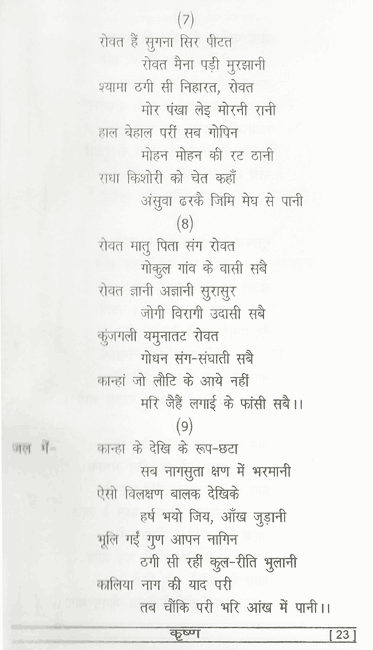 (7)
रोवत हैं सुगना सिर पीटत
रोवत मैना पड़ी मुरझानी
श्यामा ठगी सी निहारत, रोवत
मोर पंखा लेइ मोरनी रानी
हाल वेहाल परीं सब गोपिन
मोहन मोहन की रट ठानी
राधा किशोरी को चेत कहाँ
अंसुवा ढरकै जिमि मेघ से पानी
(8)
रोवत मातु पिता संग रोवत
गोकुल गांव के वासी सबै
रोवत ज्ञानी अज्ञानी सुरासुर
जोगी विरागी उदासी सबै
कुंजगली यमुनातट रोवत
गोधन संग-संघाती सबै
कान्हां जो लौटि के आये नहीं
मरि जैहैं लगाई के फांसी सबै।।
(9)
जल में- कान्हा के देखि के रूप-छटा
सब नागसुता क्षण में भरमानी
ऐसो विलक्षण बालक देखिके
हर्ष भयो जिय, आँख जुड़ानी
भूलि गईं गुण आपन नागिन
ठगी सी रहीं कुल-रीति भुलानी
कालिया नाग की याद परी
तब चौंकि परी भरि आंख में पानी।।
कृष्ण [23]